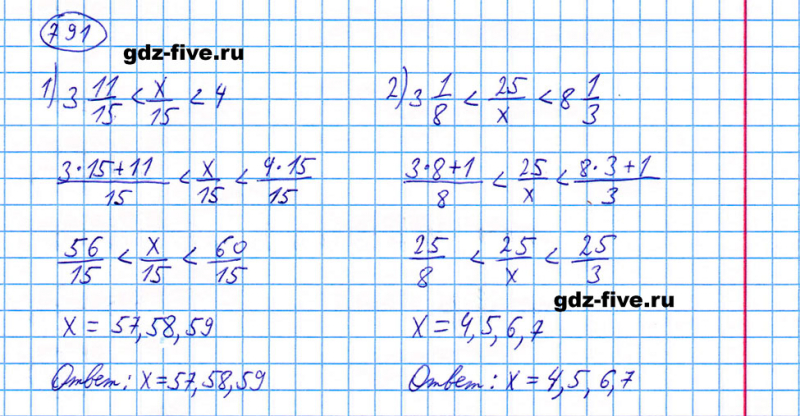 791
gdz-five.ru
1) 3 11/15 < x/15 < 4
(3·15+11)/15 < x/15 < (4·15)/15
56/15 < x/15 < 60/15
x = 57, 58, 59
Ответ: x = 57, 58, 59
2) 3 1/8 < 25/x < 8 1/3
(3·8+1)/8 < 25/x < (8·3+1)/3
25/8 < 25/x < 25/3
gdz-five.ru
x = 4, 5, 6, 7
Ответ: x = 4, 5, 6, 7